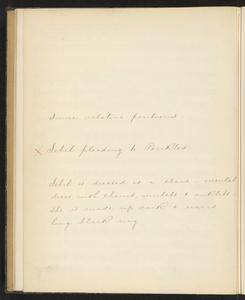 Same relative positions
x Sebit pleading to Perikles
Sebit is dressed as a slave - oriental
dress, with chains, armlets & anklets
She is made up dark & wears
long black wig